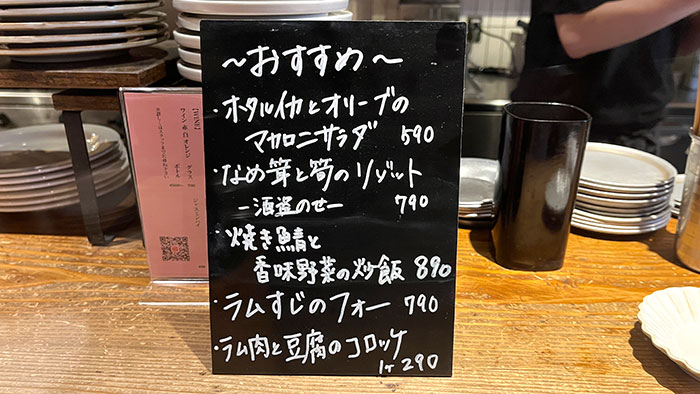 ～おすすめ～
・ホタルイカとオリーブの
マカロニサラダ 590
・なめ茸と筍のリゾット
ー酒盗のせー 790
・焼き鯖と
香味野菜の炒飯 890
・ラムすじのフォー 790
・ラム肉と豆腐のコロッケ
1ヶ 290
【WINE】
ワイン 赤 白 オレンジ
グラス
ボトル